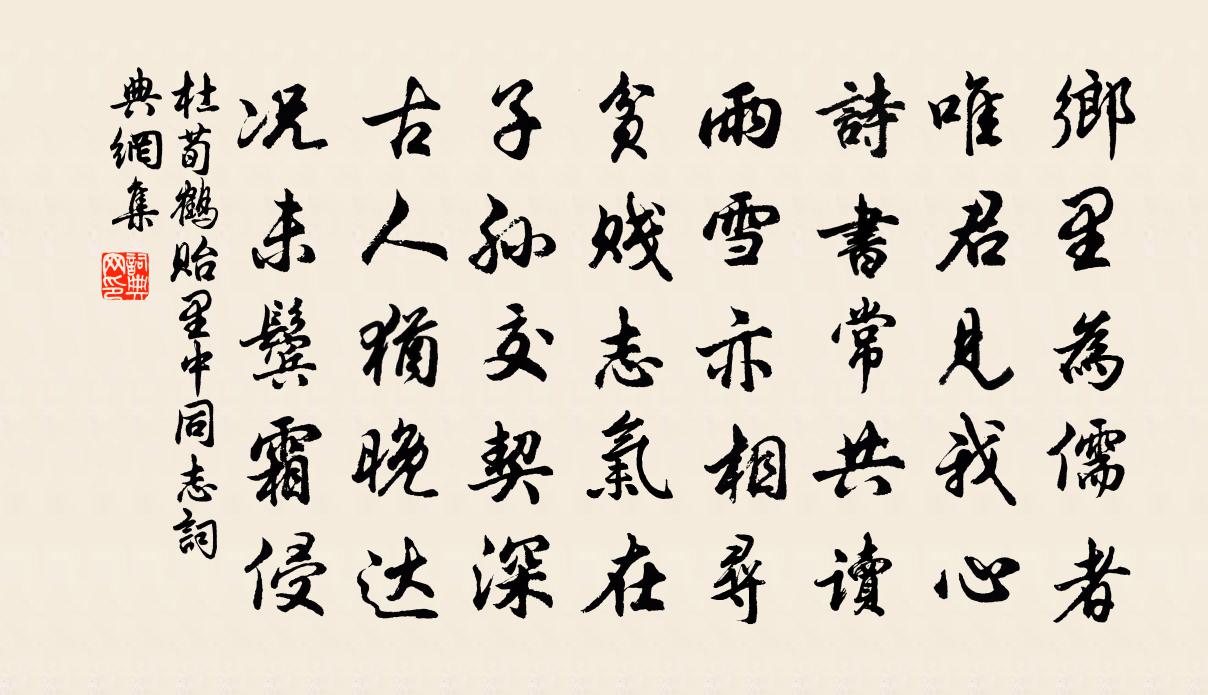 鄉里為儒者
唯君見我心
詩書常共讀
雨雪亦相尋
貧賤志氣在
子孫交契深
古人猶晚达
況未鬢霜侵
杜荀鶴貽里中同志詞
典網集
詞典
网印